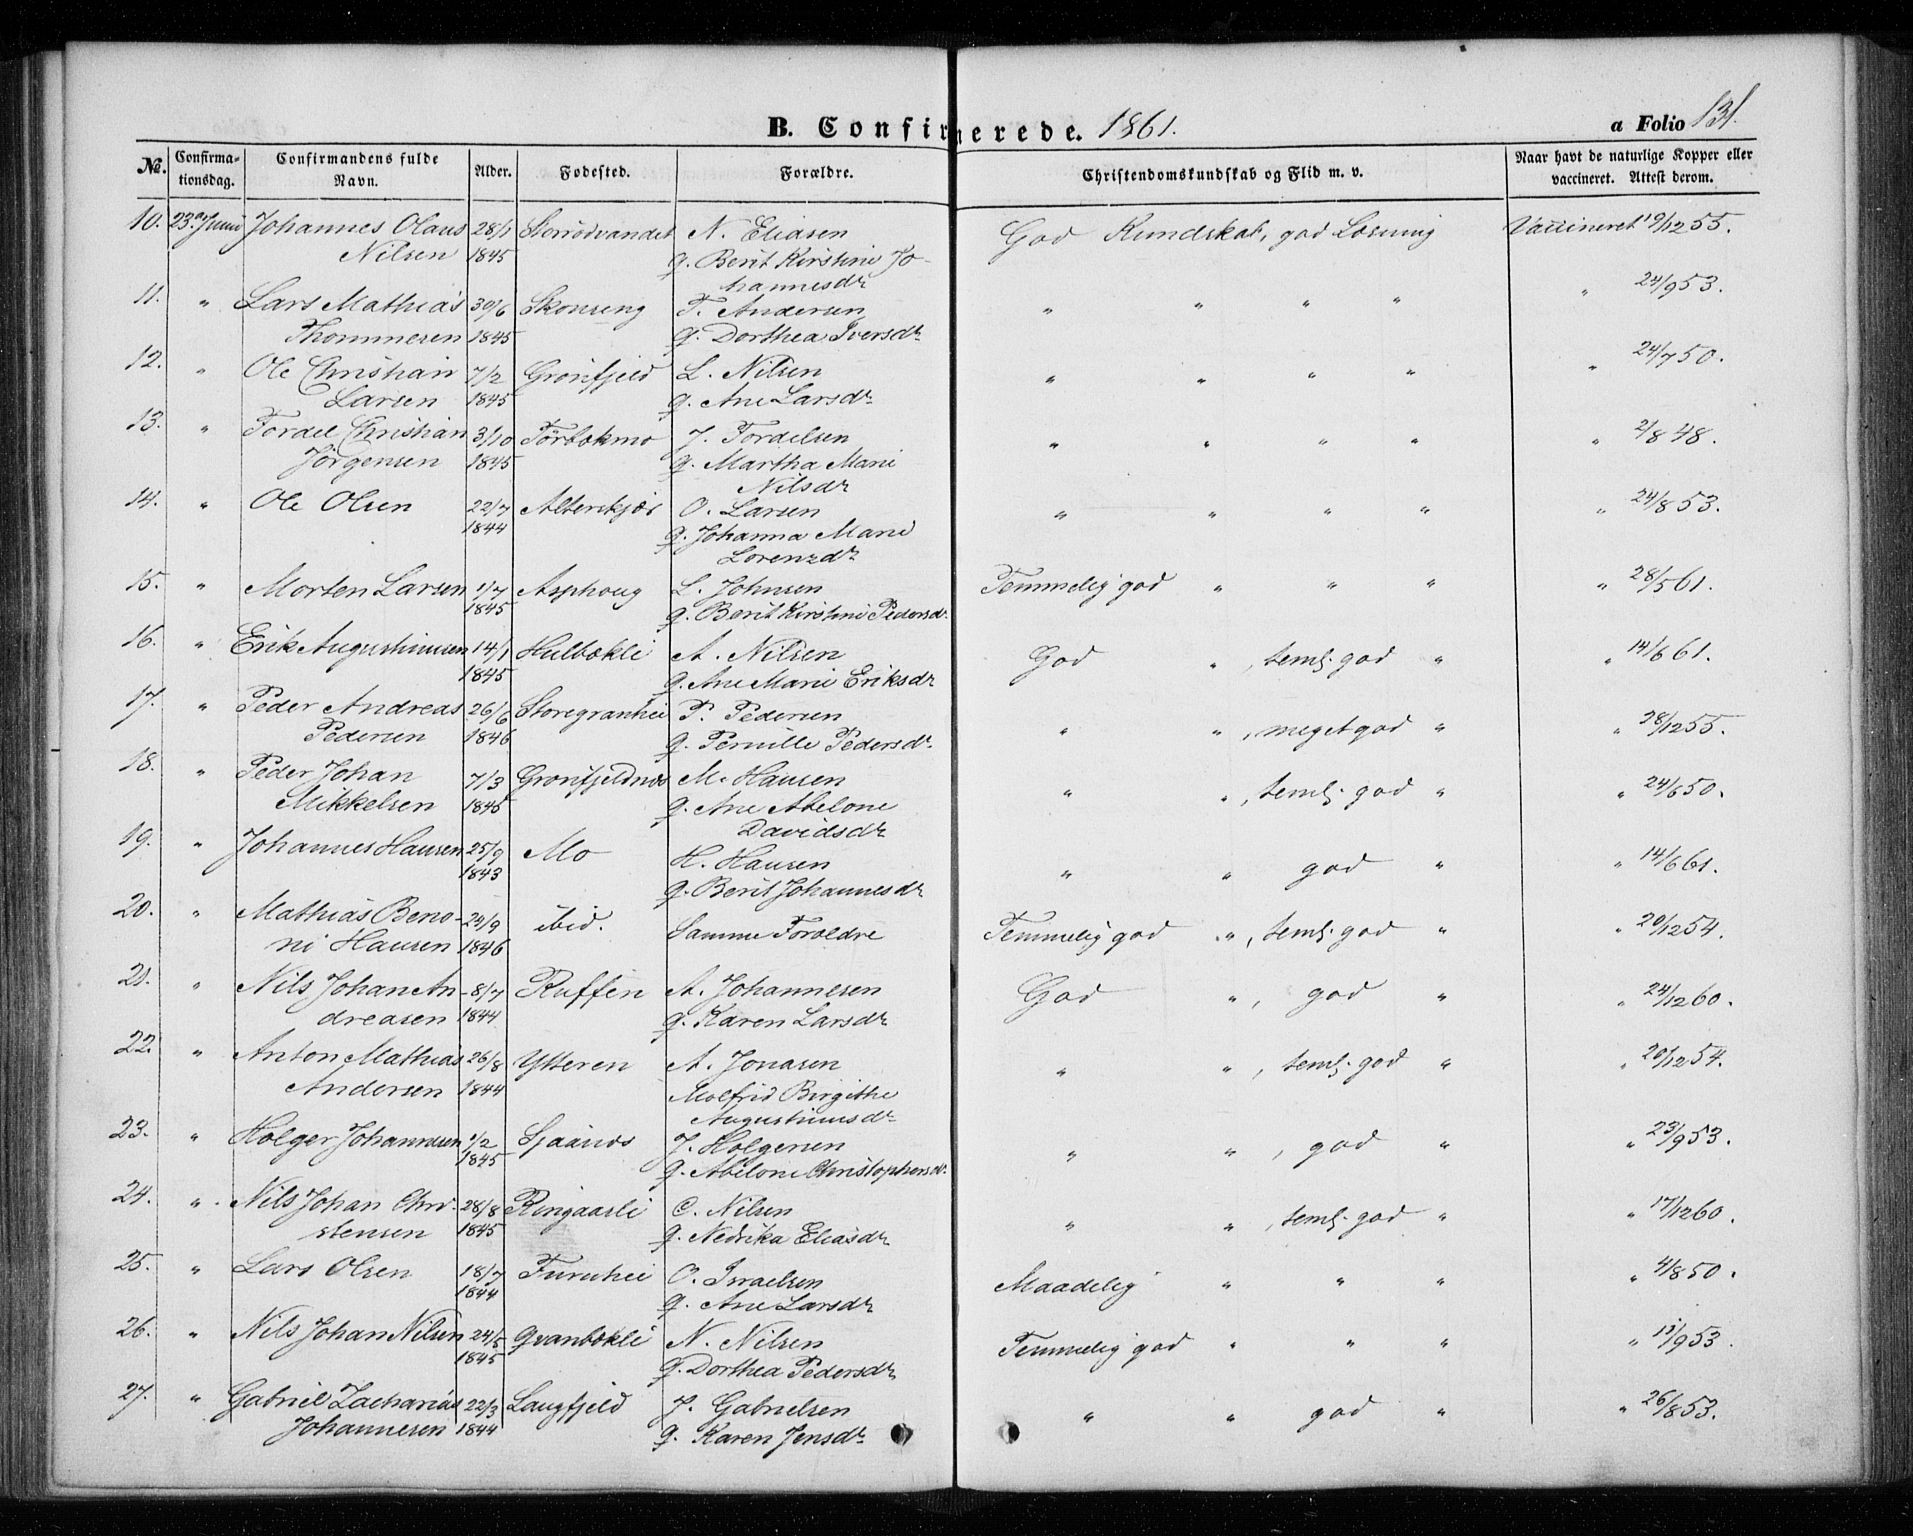 B. Confirmerede. 1861.
a Folio 131.
No. Confirmationsdag. Confirmandens fulde Navn. Alder. Fødested. Forældre. Christendomskundskab og Flid m. v. Naar havt de naturlige Kopper eller vaccineret. Attest derom.
10. 23de Juni Johannes Olaus 28/1 Storrödvandet N. Eliasen God Kundskab, god Læsning Vaccineret 19/12 55.
Nilsen 1845 q. Berit Kirstine Jo-
hannesdr
11. " Lars Mathias 30/6 Skonseng T. Andersen " " " " " 24/9 53.
Thommesen 1845 q. Dorthea Iversdr
12. " Ole Christian 7/2 Grönfjeld L. Nilsen " " " " " 24/7 50.
Larsen 1845 q. Ane Larsdr
13. " Tordel Christian 3/10 Törbækmo J. Tordelsen " " " " " 2/8 48.
Jörgensen 1845 q. Martha Marie
Nilsdr
14. " Ole Olsen 22/7 Alterskjær O. Larsen " " " " " 24/8 53.
1844 q. Johanna Marie
Lorenzdr
15. " Morten Larsen 1/7 Asphoug L. Johnsen Temmelig god " " " " 28/5 61.
1845 q. Berit Kirstine Pedersdr
16. " Erik Augustinusen 14/1 Hulbækli A. Nilsen God " , teml. god " " 14/6 61.
1845 q. Ane Marie Eriksdr
17. " Peder Andreas 26/6 Storegranhei P. Pedersen " " , meget god " " 28/12 55.
Pedersen 1846 q. Pernille Pedersdr
18. " Peder Johan 7/3 Grönfjeldnæs M. Hansen " " , teml. god " " 24/6 50.
Mikkelsen 1845 q. Ane Abelone
Davidsdr
19. " Johannes Hansen 25/9 Mo H. Hansen " " god " " 14/6 61.
1843 q. Berit Johannesdr
20. " Mathias Beno- 24/9 ibid. Samme Forældre Temmelig god " , teml. god " " 20/12 54.
ni Hansen 1846
21. " Nils Johan An- 8/7 Ruffen A. Johannesen God " , god " " 24/12 60.
dreasen 1844 q. Karen Larsdr
22. " Anton Mathias 26/8 Ytteren A. Jonasen " " , teml. god " " 20/12 54.
Andersen 1844 Molfrid Birgithe
Augustinusdr
23. " Holger Johannesen 1/2 Sjaanæs J. Holgersen " " , god " " 23/9 53.
1845 q. Abelone Christophersdr
24. " Nils Johan Chri- 28/8 Ringaasli C. Nilsen " " , teml. god " " 17/12 60.
stensen 1845 q. Nedrika Eliasdr
25. " Lars Olsen 18/7 Furuhei O. Israelsen Maadelig " " " " 4/8 50.
1844 q. Ane Larsdr
26. " Nils Johan Nilsen 24/5 Qvanbækli N. Nilsen Temmelig god " " " " 11/9 53.
1845 q. Dorthea Pedersdr
27. " Gabriel Zacharias 22/3 Langfjeld J. Gabrielsen " " god " " 26/8 53.
Johannesen 1844 q. Karen Jensdr